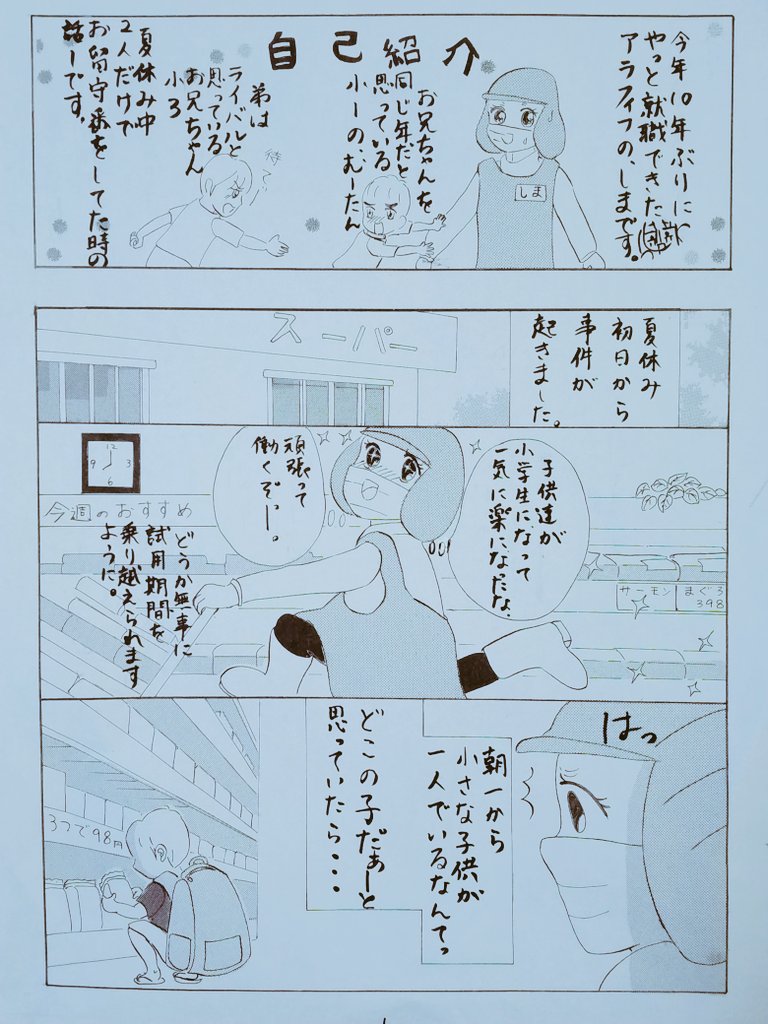 自己紹介
今年10年ぶりに
やっと就職できた
アラフィフの、しまです。
しま
お兄ちゃんを
同じ年だと
思っている
小一の、むーたん
弟は
ライバルと
思っている
お兄ちゃん
小3
待て〜
夏休み中
2人だけで
お留守番をしてた時の
話しです。
夏休み
初日から
事件が
起きました。
スーパー
子供達が
小学生になって
一気に楽になったな。
頑張って
働くぞっー。
12
9
3
6
今週のおすすめ
どうか無事に
試用期間を
乗り越えられます
ように。
サーモン
まぐろ
398
はっ
朝一から
小さな子供が
一人でいるなんてっ
どこの子だぁーと
思っていたら・・・
3つで98円